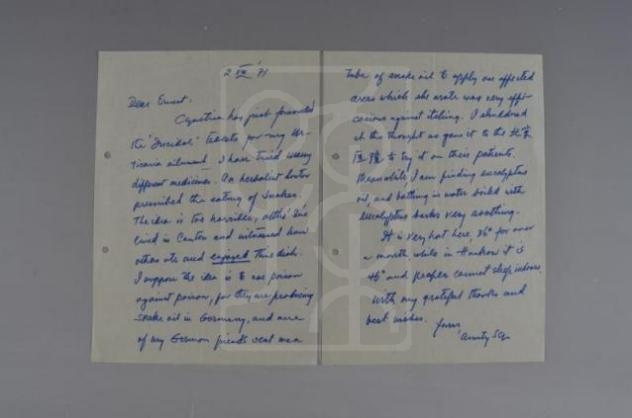 2 VIII '71
Dear Ernest.
Cynthia has just forwarded
the "Incidal" Tablets for my Ur-
ticaria ailment. I have tried many
different medicines. An herbalist doctor
prescribed the eating of Snakes.
The idea is too horrible, altho' I've
lived in Canton and witnessed how
others ate and enjoyed this dish.
I suppose the idea is to use poison
against poison, for they are producing
snake oil in Germany, and one
of my German friends sent me a
tube of snake oil to apply on affected
areas which she wrote was very effi-
cacious against itching. I shuddered
at the thought so gave it to the 北京
医院 to try it on their patients.
Meanwhile I am finding eucalyptus
oil, and bathing in water boiled with
eucalyptus barks very soothing.
It is very hot here, 36° for over
a month while in Hankow it is
46° and people cannot sleep indoors.
With my grateful thanks and
best wishes.
Yours